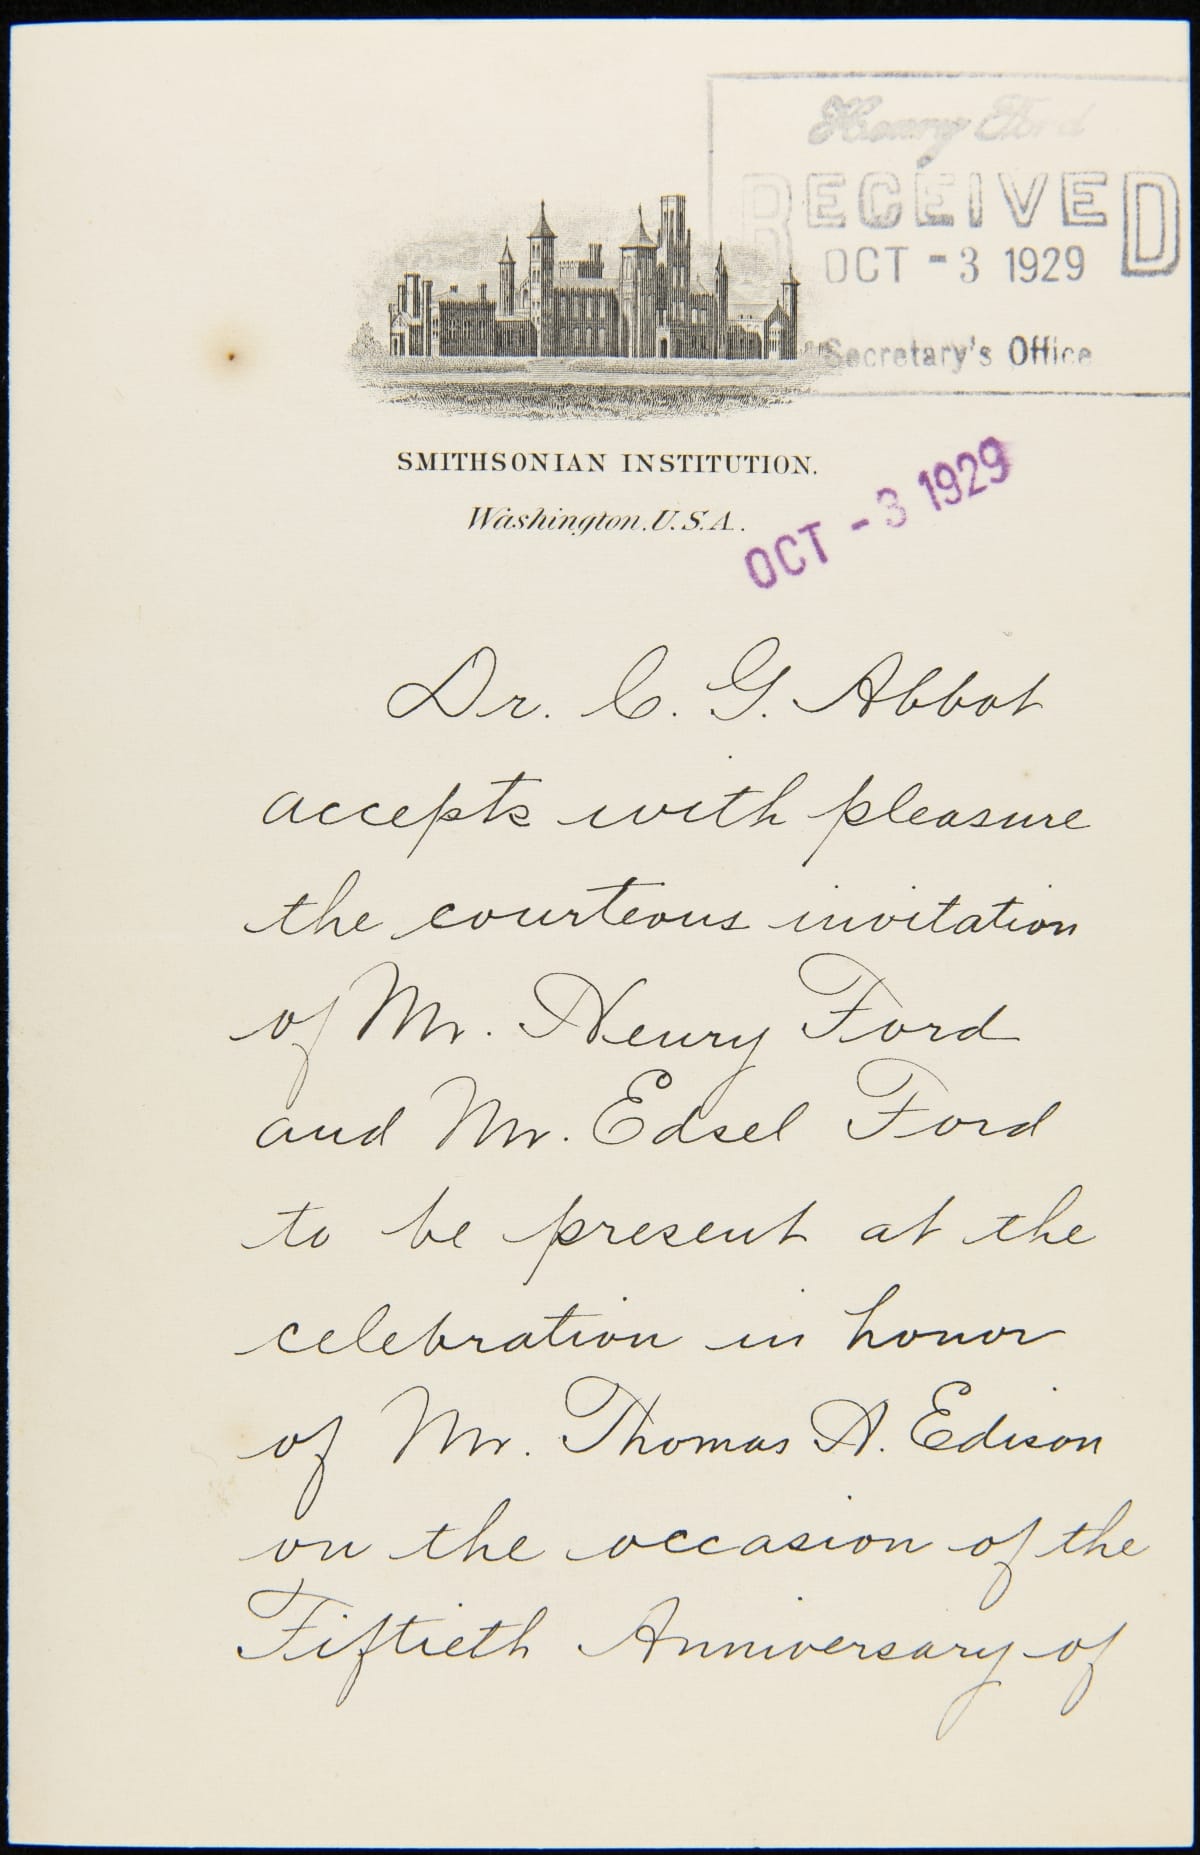 Henry Ford
RECEIVED
OCT - 3 1929
Secretary's Office
SMITHSONIAN INSTITUTION.
Washington, U.S.A.
OCT - 3 1929
Dr. C. G. Abbot
accepts with pleasure
the courteous invitation
of Mr. Henry Ford
and Mr. Edsel Ford
to be present at the
celebration in honor
of Mr. Thomas A. Edison
on the occasion of the
Fiftieth Anniversary of